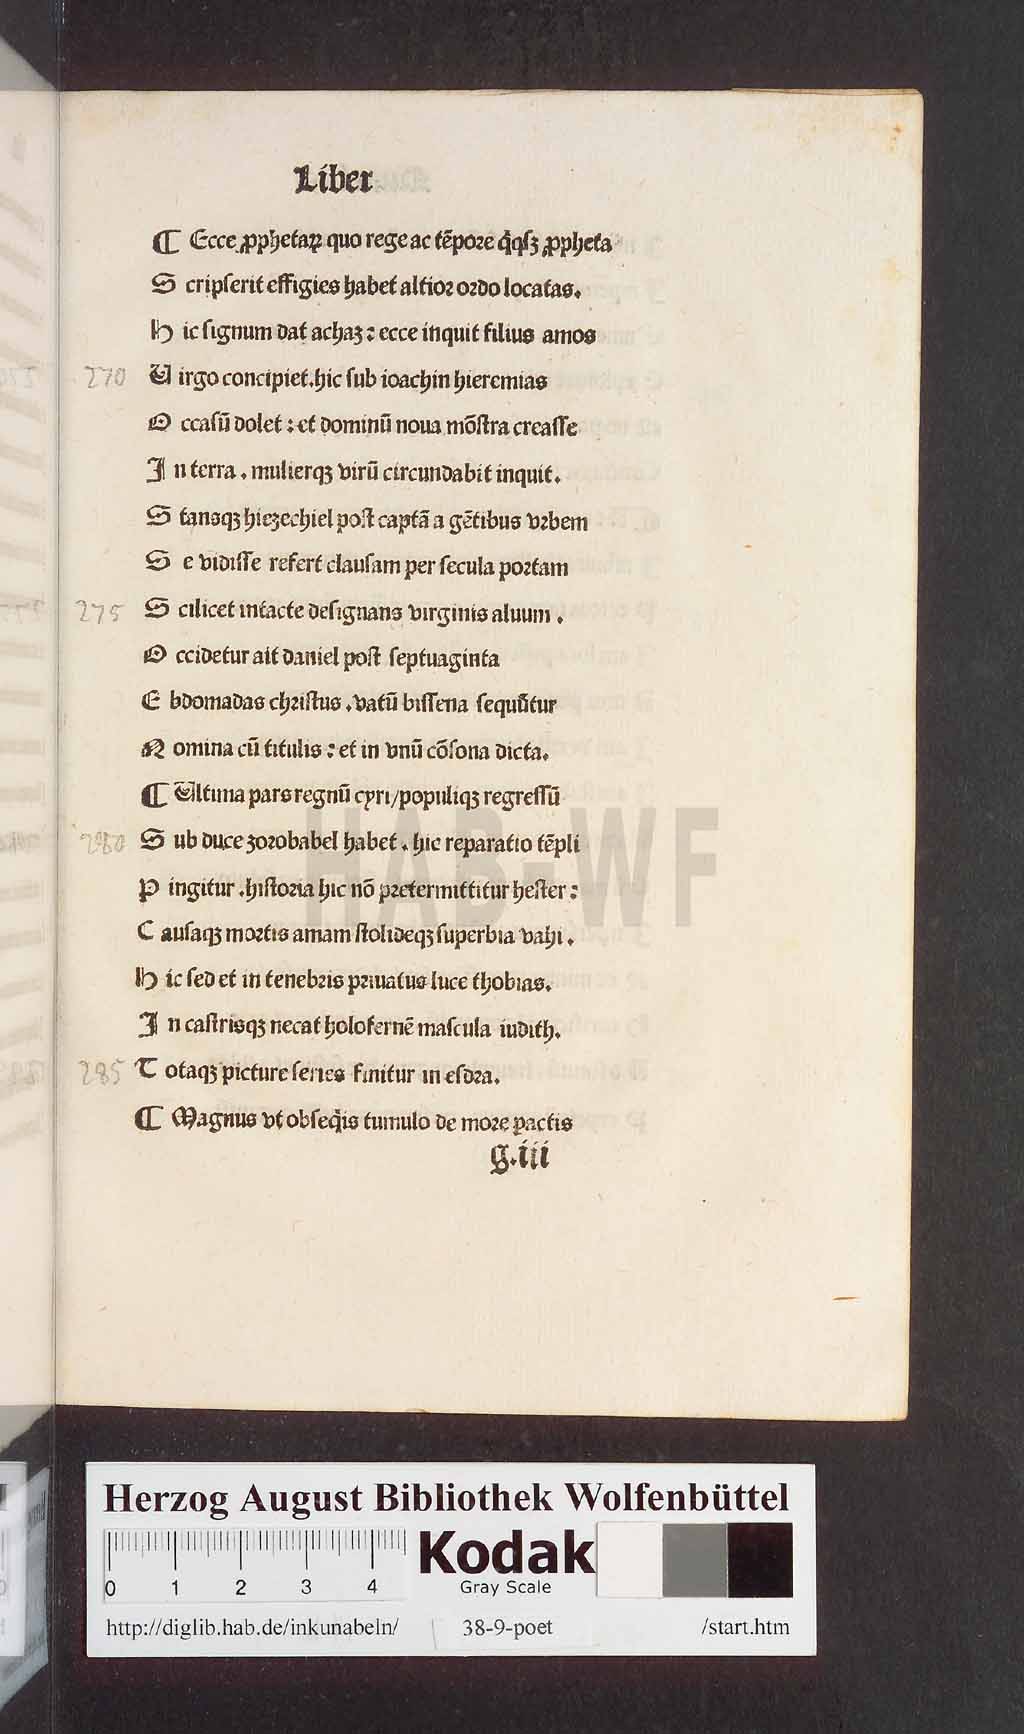 Liber
¶ Ecce ꝓphetaꝝ quo rege ac tẽpore q̇qꝫ ꝓpheta
S cripserit effigies habet altior ordo locatas.
H ic signum dat achaz : ecce inquit filius amos
270 V irgo concipiet.hic sub ioachin hieremias
O ccasũ dolet : et dominũ noua mõstra creasse
I n terra . mulierqꝫ virũ circundabit inquit.
S tansqꝫ hiezechiel post captã a gẽtibus vrbem
S e vidisse refert clausam per secula portam
275 S cilicet intacte designans virginis aluum .
O ccidetur ait daniel post septuaginta
E bdomadas christus . vatũ bissena sequũtur
N omina cũ titulis : et in vnũ cõsona dicta.
¶ Vltima pars regnũ cyri/populiqꝫ regressũ
280 S ub duce zorobabel habet . hic reparatio tẽpli
P ingitur .historia hic nõ pretermittitur hester :
C ausaqꝫ mortis amam stolideqꝫ superbia vahi .
H ic sed et in tenebris priuatus luce thobias.
I n castrisqꝫ necat holofernẽ mascula iudith.
285 T otaqꝫ picture series finitur in esdra.
¶ Magnus vt obseq̇is tumulo de more ꝑactis
g.iii
HAB-WF
Herzog August Bibliothek Wolfenbüttel
0 1 2 3 4
Kodak
Gray Scale
http://diglib.hab.de/inkunabeln/ 38-9-poet /start.htm